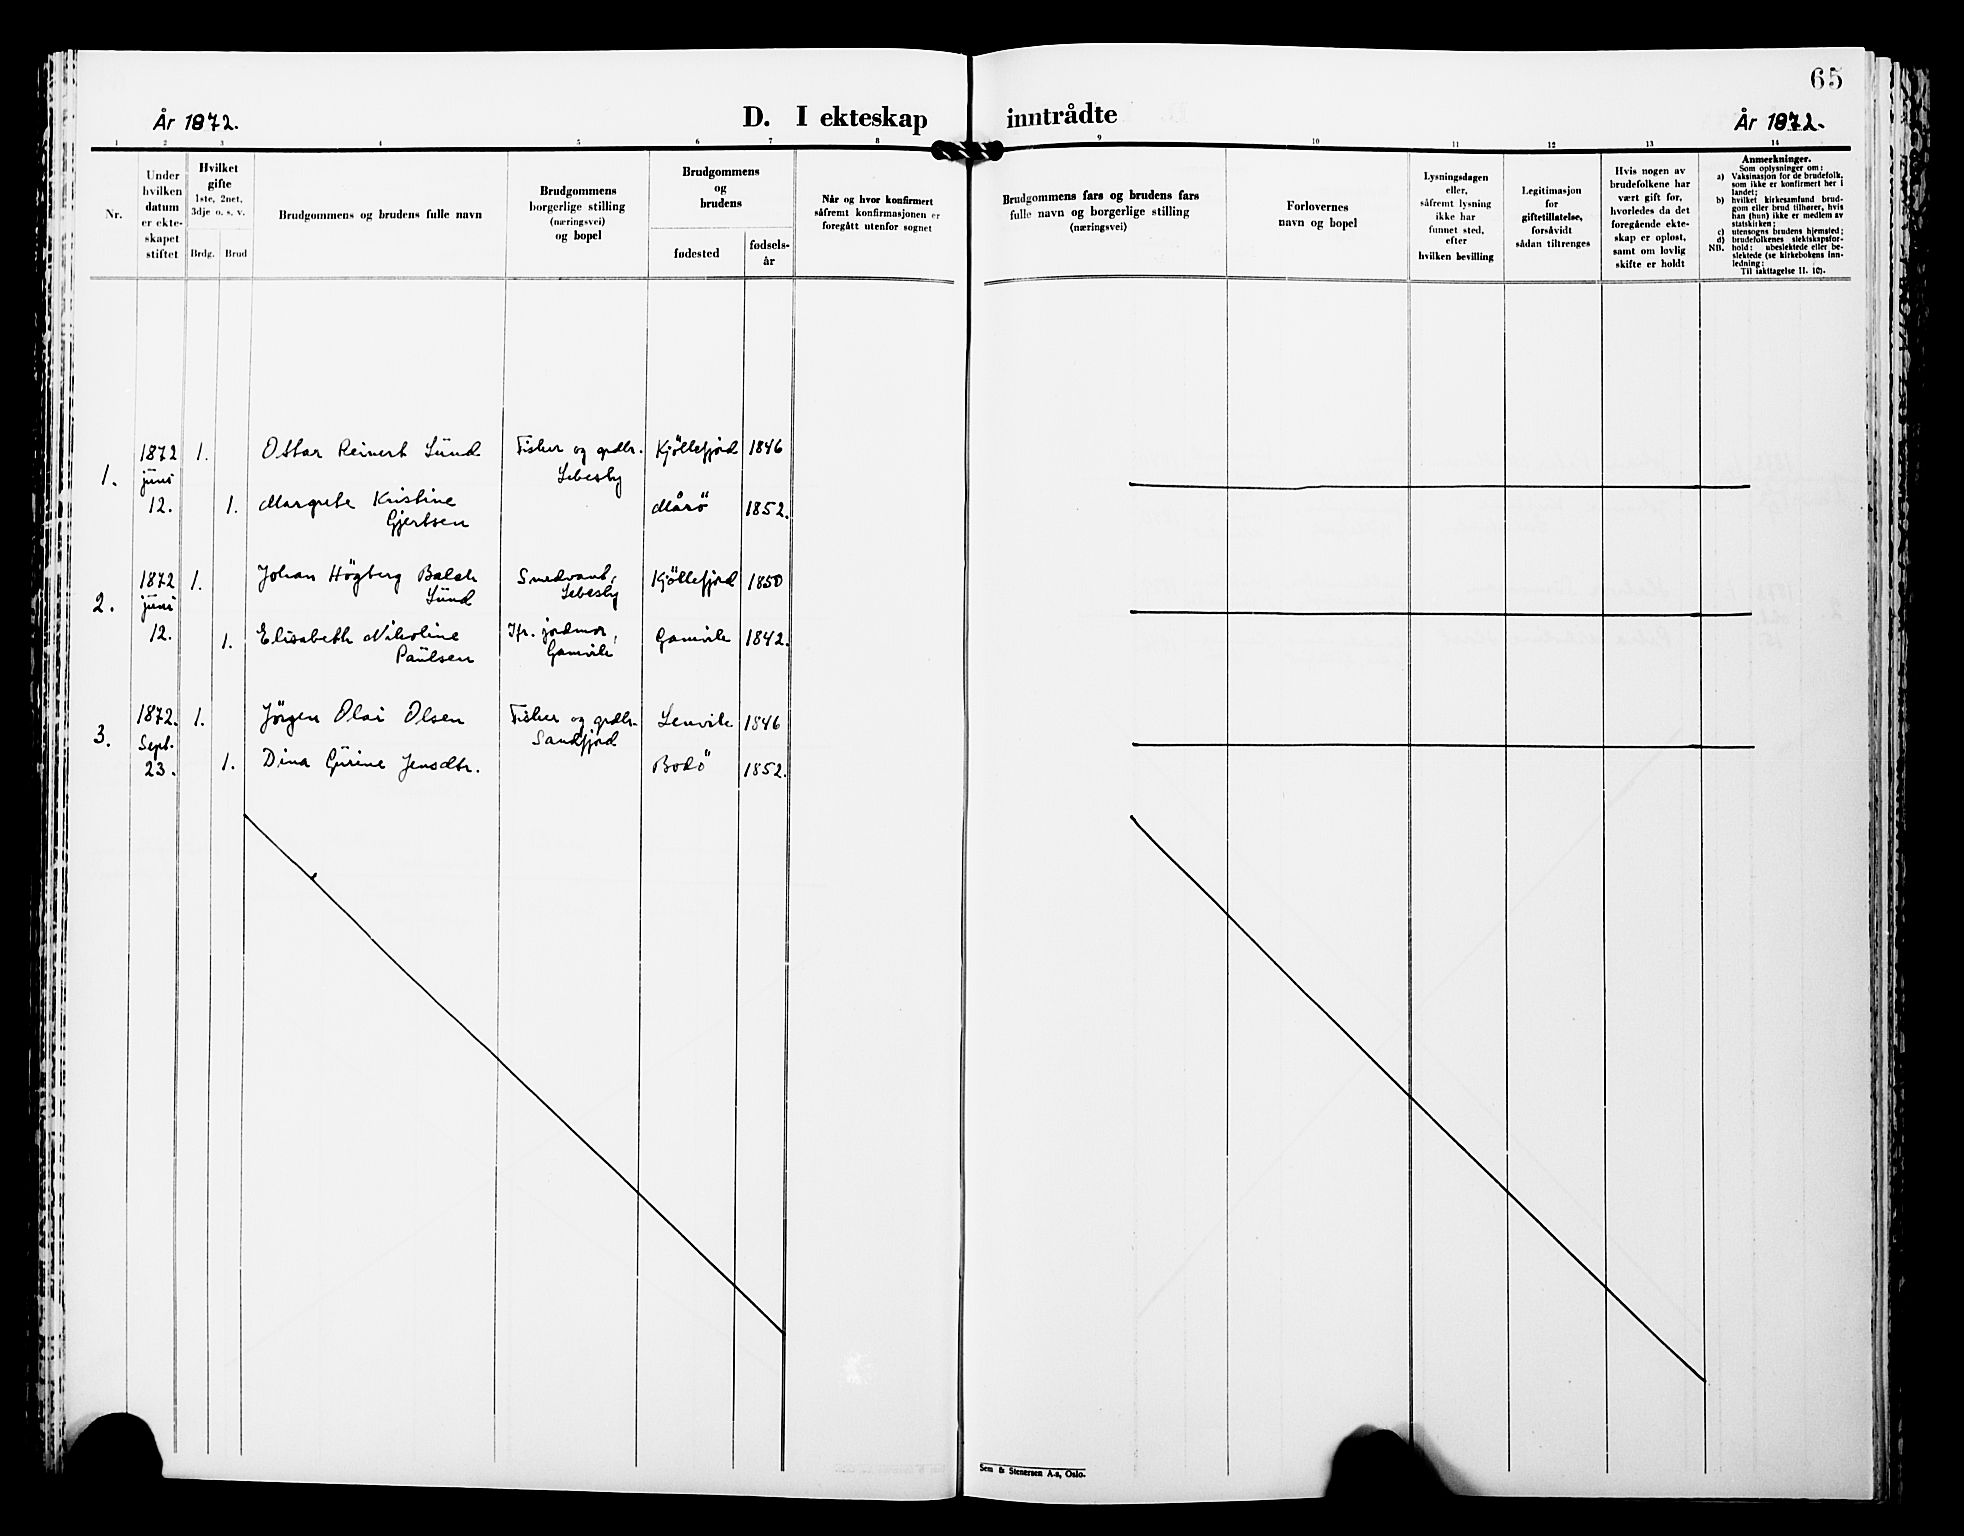 65
År 1872.
D. I ekteskap inntrådte
År 1872.
1 2 3 4 5 6 7 8 9 10 11 12 13 14
Nr.
Under
hvilken
datum
er ekte-
skapet
stiftet
Hvilket
gifte
1ste, 2net,
3dje o. s. v.
Brdg. Brud
Brudgommens og brudens fulle navn
Brudgommens
borgerlige stilling
(næringsvei)
og bopel
Brudgommens
og
brudens
fødested
fødsels-
år
Når og hvor konfirmert
såfremt konfirmasjonen er
foregått utenfor sognet
Brudgommens fars og brudens fars
fulle navn og borgerlige stilling
(næringsvei)
Forlovernes
navn og bopel
Lysningsdagen
eller,
såfremt lysning
ikke har
funnet sted,
efter
hvilken bevilling
Legitimasjon
for
giftetillatelse,
forsåvidt
sådan tiltrenges
Hvis nogen av
brudefolkene har
vært gift før,
hvorledes da det
foregående ekte-
skap er opløst,
samt om lovlig
skifte er holdt
Anmerkninger.
Som oplysninger om:
a) Vaksinasjon for de brudefolk,
som ikke er konfirmert her i
landet;
b) hvilket kirkesamfund brud-
gom eller brud tilhører, hvis
han (hun) ikke er medlem av
statskirken;
c) utensogns brudens hjemsted;
d) brudefolkenes slektskapsfor-
hold: ubeslektede eller be-
slektede (se kirkebokens inn-
ledning;
NB. Til iakttagelse II. 10).
1872 1. Ottar Reinert Lünd Fisker og grdbr. Kjöllefjord 1846
1. juni Lebesby
12. 1. Margrete Kristine Mårö 1852.
Gjertsen
1872 1. Johan Högberg Balch Smedvant, Kjöllefjord 1850
2. juni Lünd Lebesby
12. 1. Elisabeth Nikoline Jfr. jordmor, Gamvik 1842.
Paülsen Gamvik
1872. 1. Jörgen Olai Olsen Fisker og grdbr. Lenvik 1846
3. Sept. Sandfjord
23. 1. Dina Gürine Jensdtr. Bodö 1852.
Sem & Stenersen A.s, Oslo.